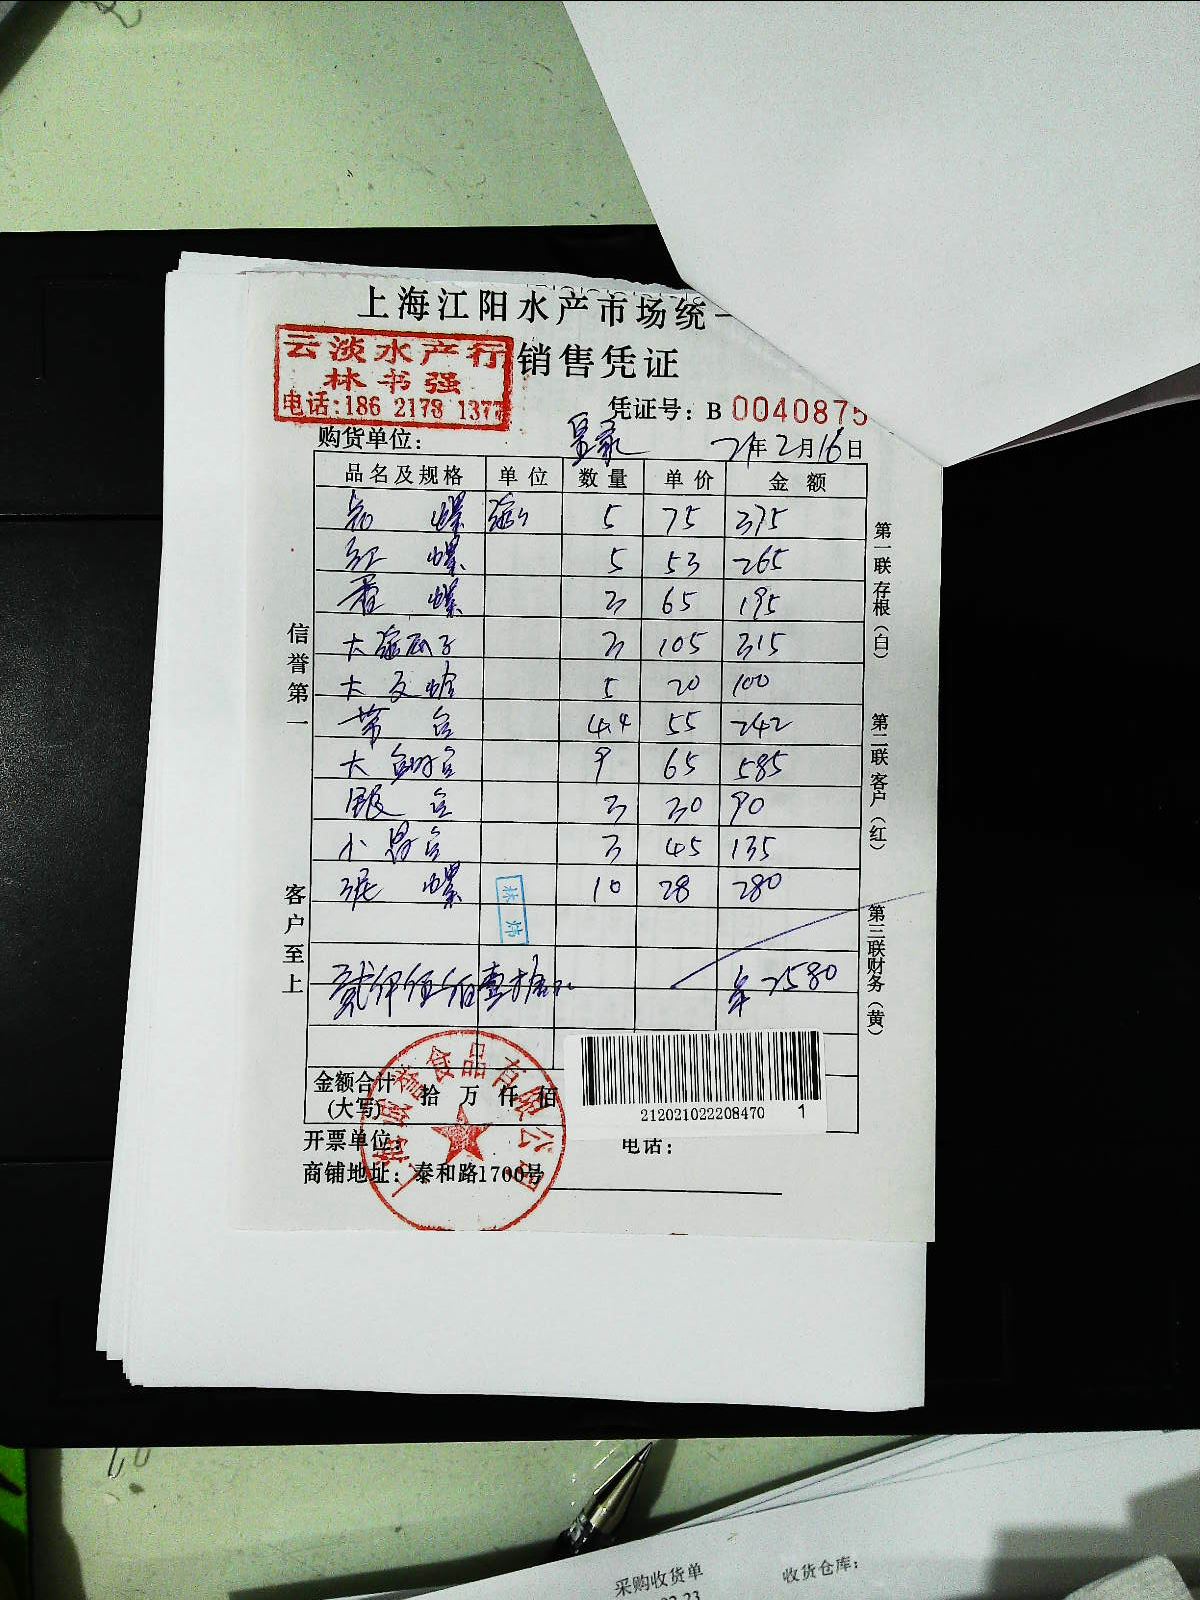 上海江阳水产市场统一
销售凭证
云淡水产行
林书强
电话:186 2178 1377
凭证号: B 0040875
购货单位:
21年2月16日
品名及规格 单位 数量 单价 金额
螺 5 75 375
红螺 5 53 265
螺 3 65 195
大 子 3 105 315
大 蛤 5 20 100
带鱼 4.4 55 242
大鲳鱼 9 65 585
银鱼 3 30 90
小 鱼 3 45 135
泥螺 10 28 280
林炜
贰仟伍佰 拾元 2580
信誉第一
客户至上
第一联存根(白)
第二联客户(红)
第三联财务(黄)
金额合计(大写) 拾 万 仟 佰
212021022208470 1
开票单位: 电话:
商铺地址: 泰和路1700号
食品有限公司
采购收货单 收货仓库: